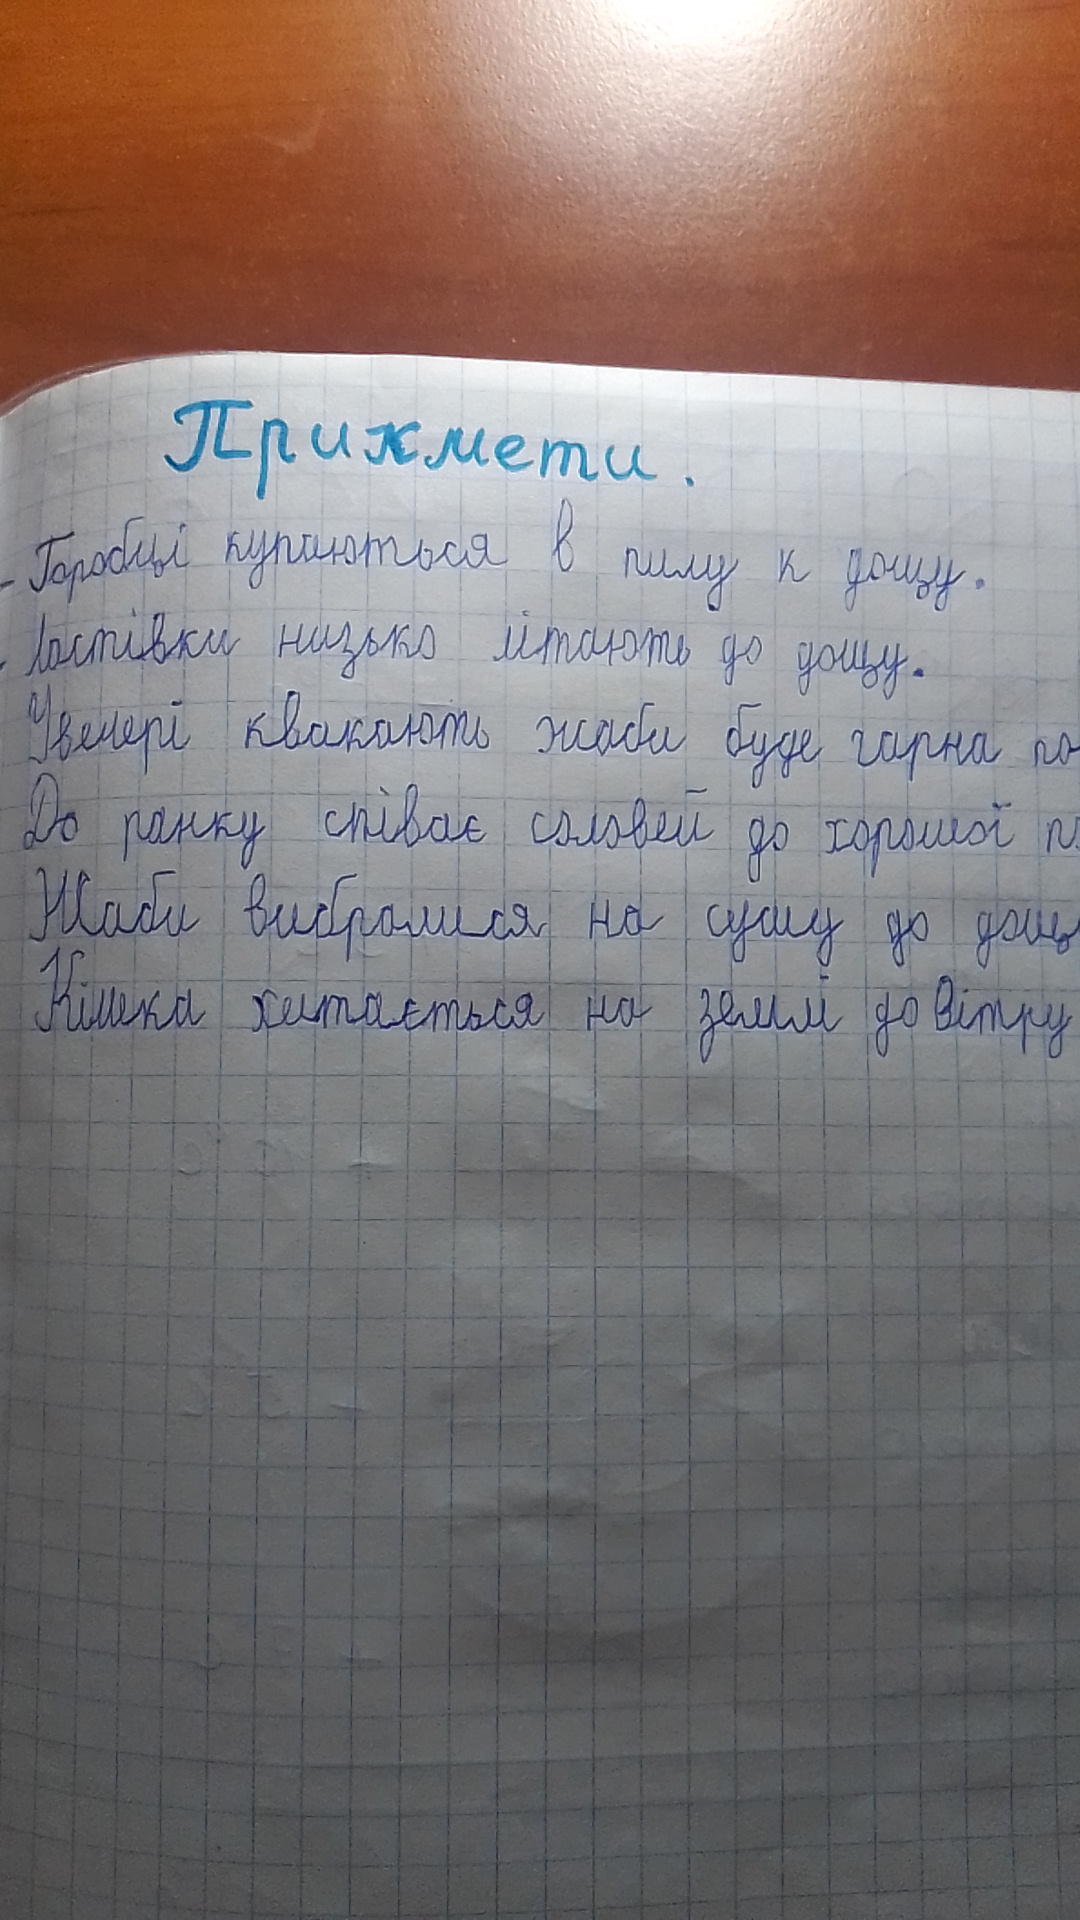 Прикмети.
- Горобці купаються в пилу к дощу.
- Ластівки низько літають до дощу.
Увечері квакають жаби буде гарна по
До ранку співає соловей до хорошої п
Жаби вибралися на сушу до дощ
Кішка хитається на землі до вітру